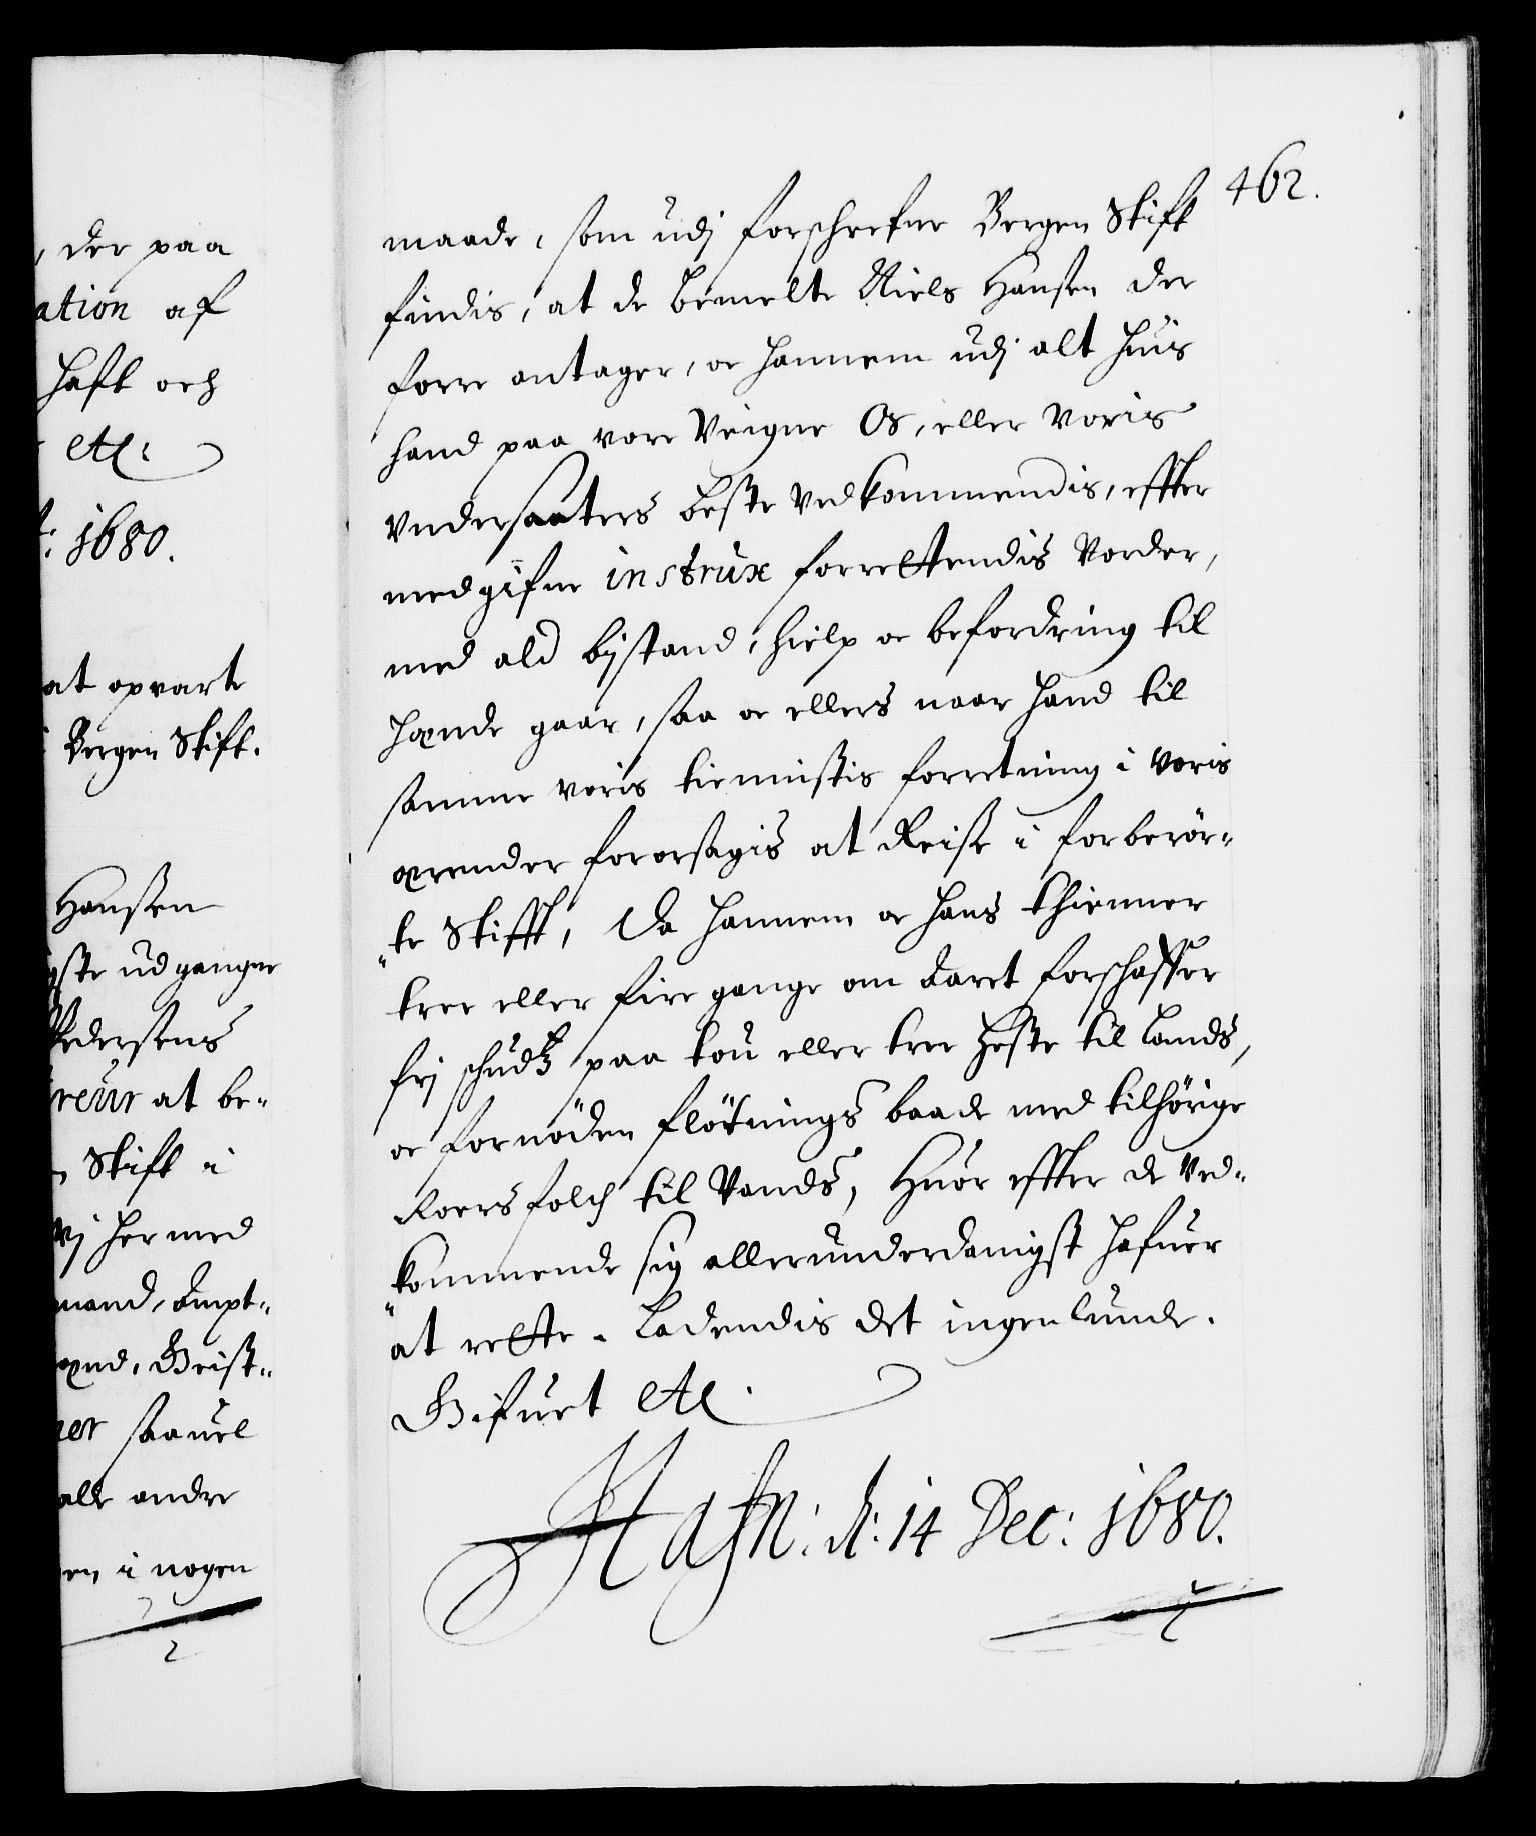 , der paa
ation af
haft och
etc:
: 1680.
at opvarte
i Bergen Stift.
Hanßen
gste udgangne
Pedersens
reur at be-
n Stift i
Vj hermed
mand, Ampt-
mænd, Geist-
ner saavel
alle andre
en, i nogen
462.
maade, som udj forschrefne Bergen Stift
findis, at de bemelte Niels Hansen der
forre antager, oc hannem udj alt huis
hand paa vore Veigne Os, eller Voris
Vndersaaters beste Vedkommendis, effter
medgifne instrux forrettendis Vorder,
med ald bystand, hielp oc befordring til
hænde gaar, saa oc ellers naar hand til
samme voris tiennistis forretning i Voris
ærender forarsagis at Reise i forberör-
"te Stifft, da hannem oc hans thienner
tree eller fire gange om Aaret forschaffer
frj schudtz paa tou eller tree heste til Lands,
oc fornöden flötnings baade med tilhörige
Roersfolch til Vands, Huor effter de Ved-
"kommende sig allerunderdanigst hafuer
at rette. Ladendis det ingenlunde.
Gifuet etc.
Hafn: d: 14 Dec: 1680.